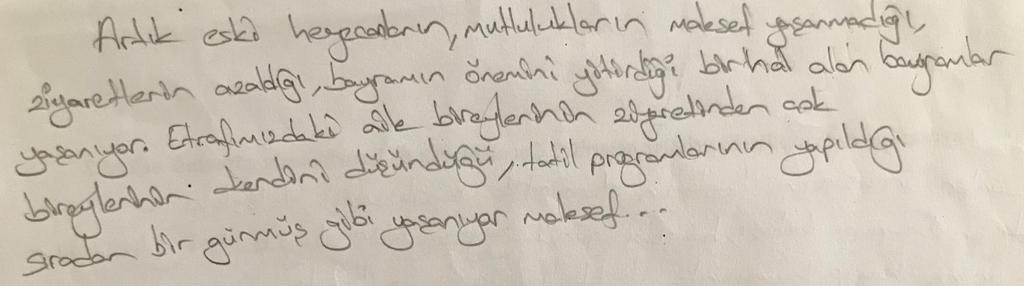 Artık eski heyecanların, mutlulukların malesef yaşanmadığı,
ziyaretlerin azaldığı, bayramın önemini yitirdiği bir hal alan bayramlar
yaşanıyor. Etrafımızdaki aile bireylerinin ziyaretinden çok
bireylerinin kendini düşündüğü, tatil programlarının yapıldığı
sıradan bir günmüş gibi yaşanıyor malesef...